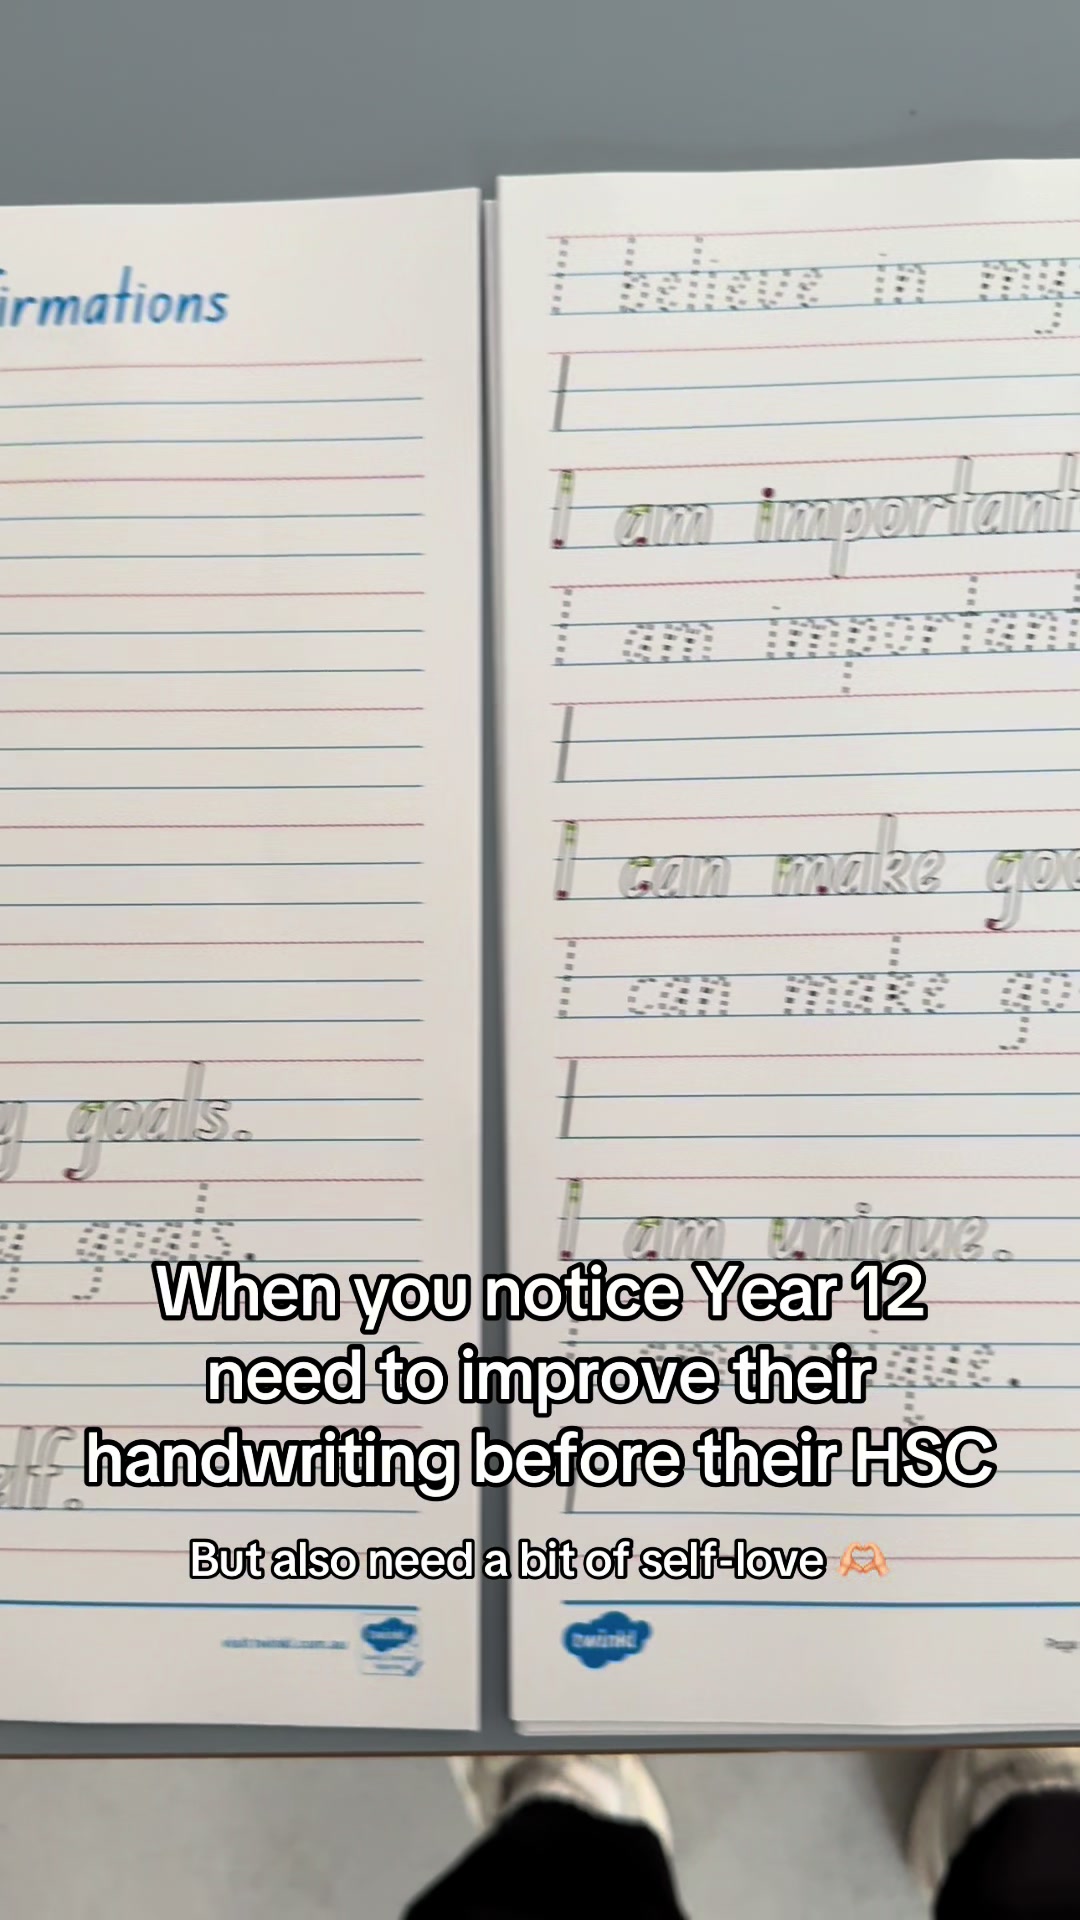 irmations
goals.
goals.
elf.
I believe in my
I
I am important
I am important
I
I can make goo
I can make go
I
I am unique.
unique.
When you notice Year 12
need to improve their
handwriting before their HSC
But also need a bit of self-love 🫶🏻
visit twinkl.com.au
twinkl
twinkl
Page